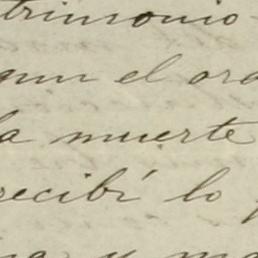 trimonio
gun el ord
la muerte
recibí lo